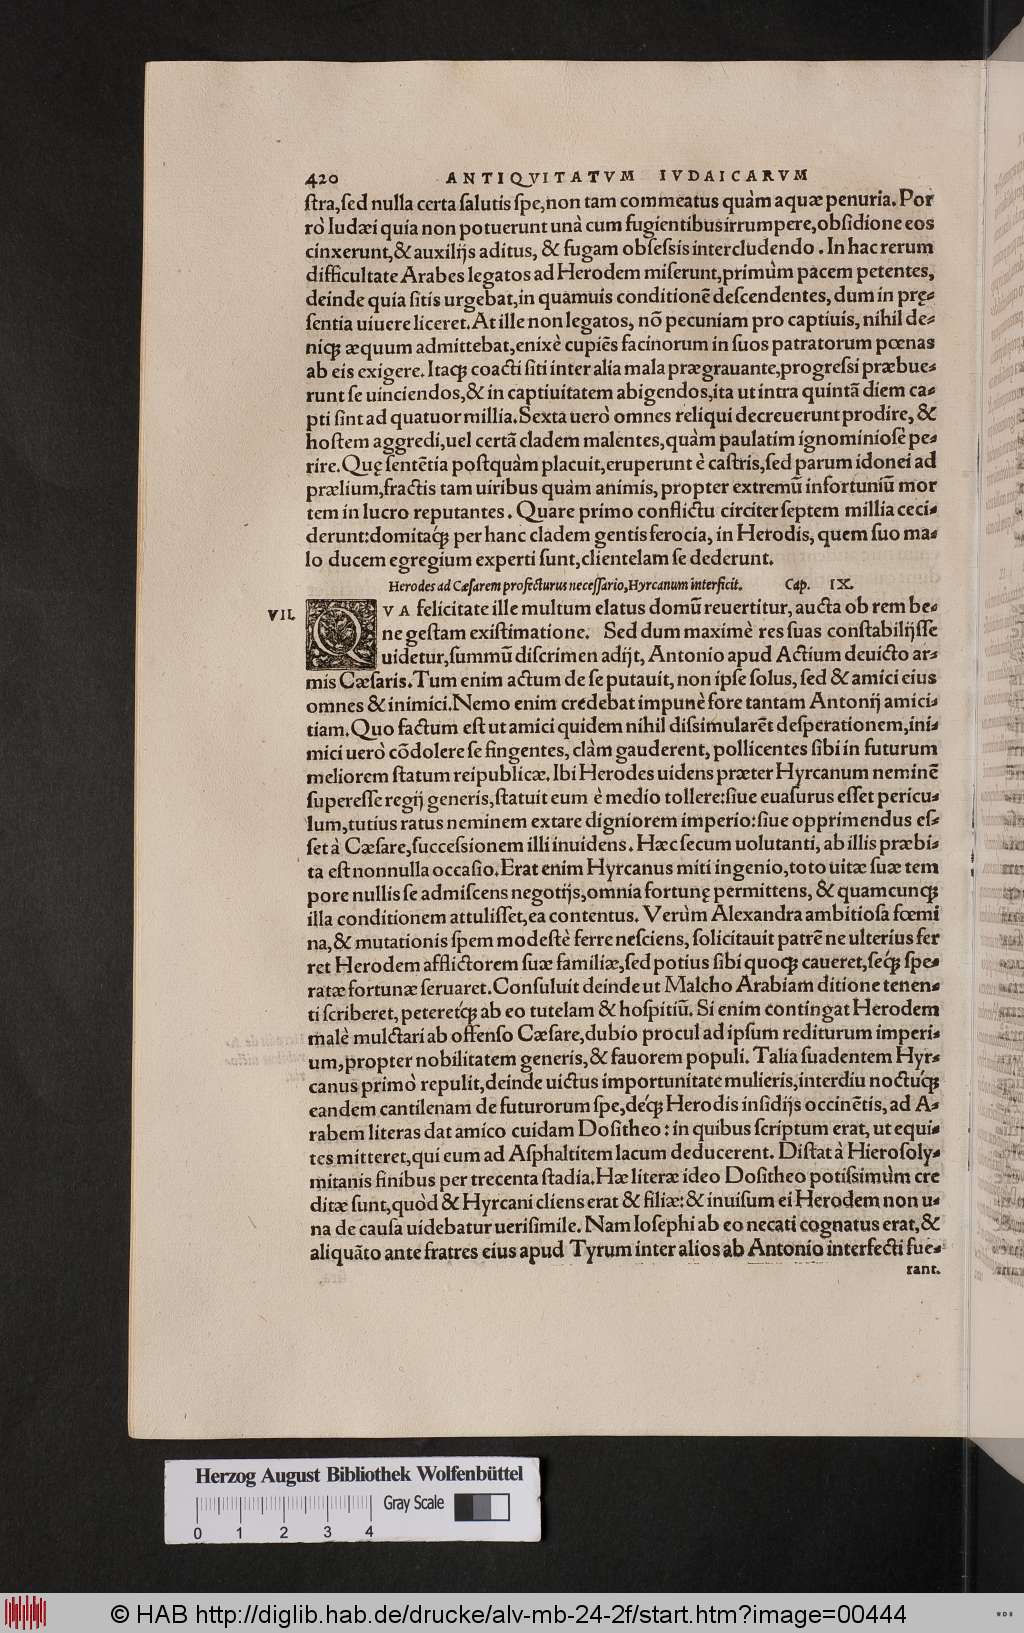 420 ANTIQVITATVM IVDAICARVM
ſtra,ſed nulla certa ſalutis ſpe,non tam commeatus quàm aquæ penuria. Por
rò Iudæi quia non potuerunt unà cum fugientibus irrumpere,obſidione eos
cinxerunt,& auxilijs aditus, & fugam obſeſsis intercludendo. In hac rerum
difficultate Arabes legatos ad Herodem miſerunt,primùm pacem petentes,
deinde quia ſitis urgebat,in quamuis conditionē deſcendentes, dum in prę-
ſentia uiuere liceret. At ille non legatos, nō pecuniam pro captiuis, nihil de-
niq́; æquum admittebat,enixè cupiēs facinorum in ſuos patratorum pœnas
ab eis exigere. Itaq; coacti ſiti inter alia mala prægrauante,progreſsi præbue-
runt ſe uinciendos,& in captiuitatem abigendos,ita ut intra quintā diem ca-
pti ſint ad quatuor millia. Sexta uerò omnes reliqui decreuerunt prodire, &
hoſtem aggredi,uel certā cladem malentes,quàm paulatim ignominioſè pe-
rire. Quę ſentētia poſtquàm placuit,eruperunt è caſtris,ſed parum idonei ad
prælium,fractis tam uiribus quàm animis, propter extremū infortuniū mor
tem in lucro reputantes. Quare primo conflictu circiter ſeptem millia ceci-
derunt:domitaq́; per hanc cladem gentis ferocia, in Herodis, quem ſuo ma-
lo ducem egregium experti ſunt,clientelam ſe dederunt.
Herodes ad Cæſarem profecturus neceſſario,Hyrcanum interficit. Cap. IX.
VII. QVA felicitate ille multum elatus domū reuertitur, aucta ob rem be-
ne geſtam exiſtimatione. Sed dum maximè res ſuas conſtabilijſſe
uidetur,ſummū diſcrimen adijt, Antonio apud Actium deuicto ar-
mis Cæſaris. Tum enim actum de ſe putauit, non ipſe ſolus, ſed & amici eius
omnes & inimici. Nemo enim credebat impunè fore tantam Antonij amici-
tiam. Quo factum eſt ut amici quidem nihil diſsimularēt deſperationem,ini-
mici uerò cōdolere ſe fingentes, clàm gauderent, pollicentes ſibi in futurum
meliorem ſtatum reipublicæ. Ibi Herodes uidens præter Hyrcanum neminē
ſupereſſe regij generis,ſtatuit eum è medio tollere:ſiue euaſurus eſſet pericu-
lum,tutius ratus neminem extare digniorem imperio:ſiue opprimendus eſ-
ſet à Cæſare,ſucceſsionem illi inuidens. Hæc ſecum uolutanti, ab illis præbi-
ta eſt nonnulla occaſio. Erat enim Hyrcanus miti ingenio,toto uitæ ſuæ tem
pore nullis ſe admiſcens negotijs,omnia fortunę permittens, & quamcunq;
illa conditionem attuliſſet,ea contentus. Verùm Alexandra ambitioſa fœmi
na,& mutationis ſpem modeſtè ferre neſciens, ſolicitauit patrē ne ulterius fer
ret Herodem afflictorem ſuæ familiæ,ſed potius ſibi quoq; caueret,ſeq́; ſpe-
ratæ fortunæ ſeruaret. Conſuluit deinde ut Malcho Arabiam ditione tenen-
ti ſcriberet, peteretq́; ab eo tutelam & hoſpitiū. Si enim contingat Herodem
malè mulctari ab offenſo Cæſare,dubio procul ad ipſum rediturum imperi-
um,propter nobilitatem generis,& fauorem populi. Talia ſuadentem Hyr-
canus primò repulit,deinde uictus importunitate mulieris,interdiu noctuq́;
eandem cantilenam de futurorum ſpe,deq́; Herodis inſidijs occinētis, ad A-
rabem literas dat amico cuidam Doſitheo: in quibus ſcriptum erat, ut equi-
tes mitteret,qui eum ad Aſphaltitem lacum deducerent. Diſtat à Hieroſoly-
mitanis finibus per trecenta ſtadia. Hæ literæ ideo Doſitheo potiſsimùm cre
ditæ ſunt,quòd & Hyrcani cliens erat & filiæ: & inuiſum ei Herodem non u-
na de cauſa uidebatur ueriſimile. Nam Ioſephi ab eo necati cognatus erat,&
aliquāto ante fratres eius apud Tyrum inter alios ab Antonio interfecti fue-
rant.
Herzog August Bibliothek Wolfenbüttel
Gray Scale
0 1 2 3 4
© HAB http://diglib.hab.de/drucke/alv-mb-24-2f/start.htm?image=00444